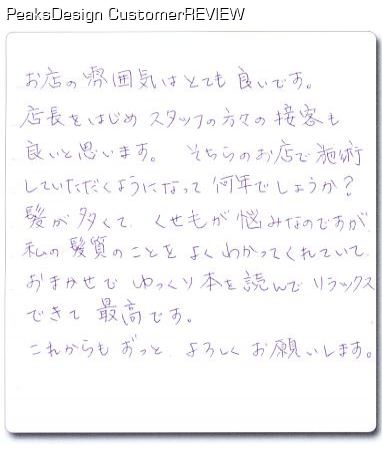 PeaksDesign CustomerREVIEW
お店の雰囲気はとても良いです。
店長をはじめ スタッフの方々の接客も
良いと思います。 そちらのお店で施術
していただくようになって 何年でしょうか?
髪が多くて、くせもが悩みなのですが、
私の髪質のことを よくわかってくれていて、
おまかせで ゆっくり本を読んで リラックス
できて 最高です。
これからも ずっと、よろしく お願いします。